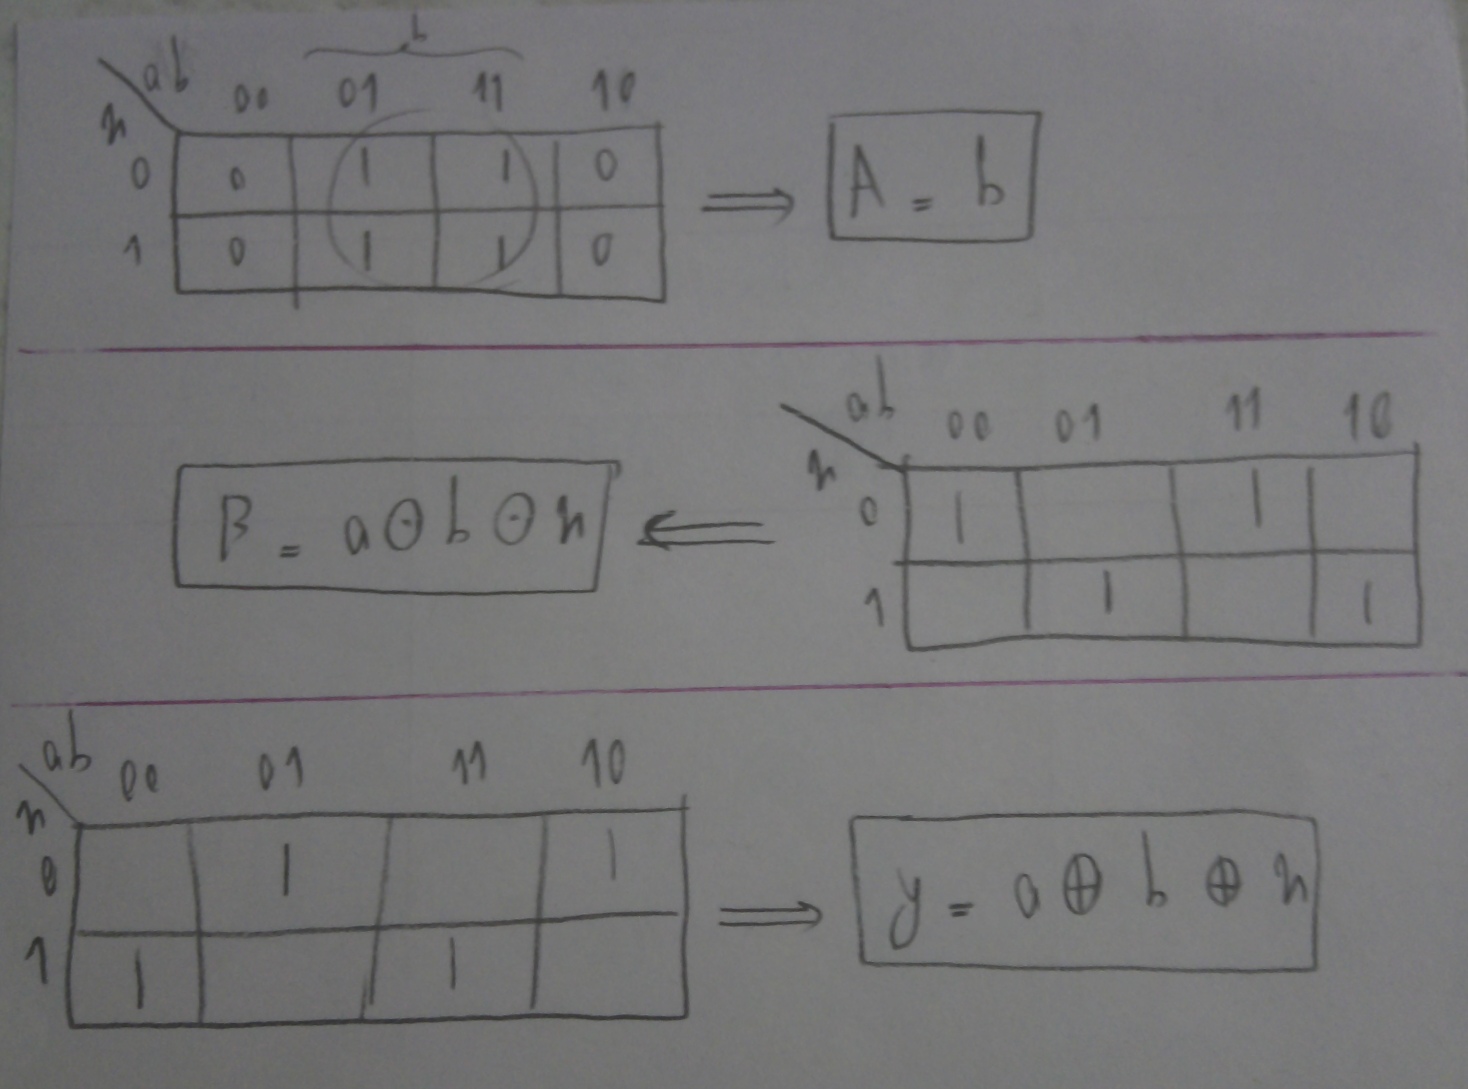 b
ab 00 01 11 10
x
0 0 1 1 0
1 0 1 1 0
A = b
ab 00 01 11 10
x
0 1 1
1 1 1
B = a ⊙ b ⊙ x
ab 00 01 11 10
x
0 1 1
1 1 1
y = a ⊕ b ⊕ x